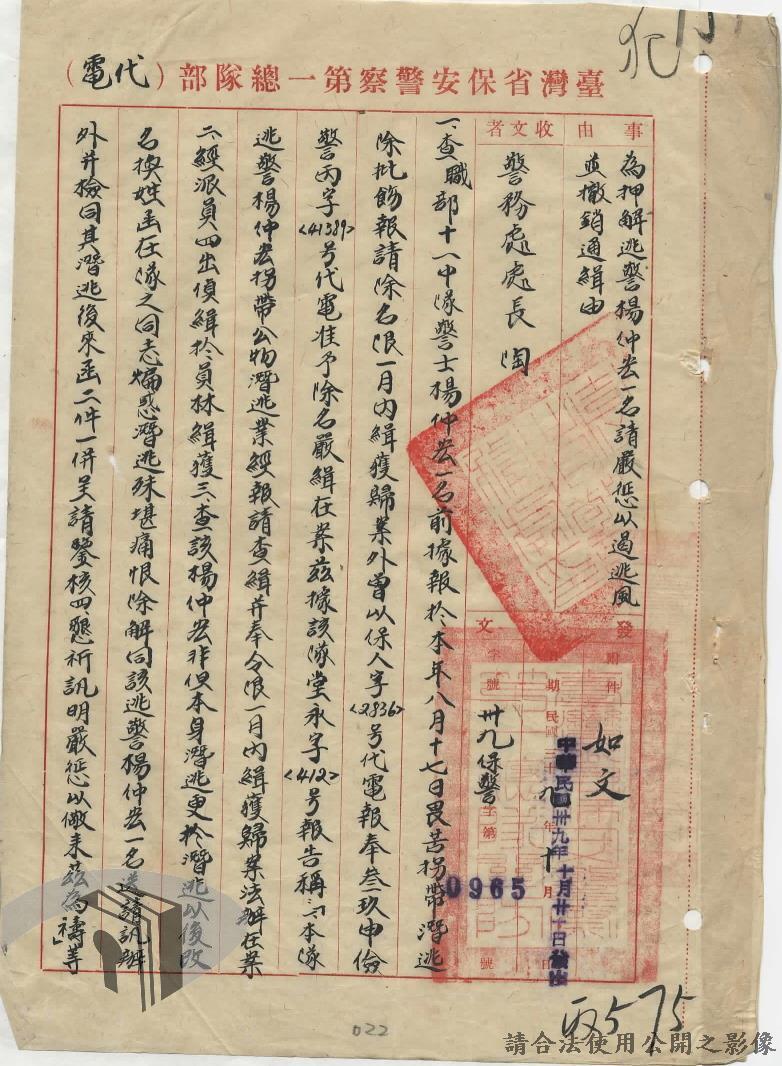 臺灣省保安警察第一總隊部（代電）
犯
事由
為押解逃警楊仲宏一名請嚴懲以遏逃風
並撤銷通緝由
收文者
警務處處長陶
發文
附件
如文
日期
民國
年
月
日
中華民國卅九年十月卅一日
字號
卅九保警
字第
0965
號
一、查職部十八中隊警士楊仲宏一名前據報於本年八月十七日畏苦拐帶潛逃
除批飭報請除名限一月內緝獲歸案外曾以保人字<2836>號代電報奉叁玖申儉
警丙字<41389>號代電准予除名嚴緝在案茲據該隊堂永字<412>號報告稱「一、本隊
逃警楊仲宏拐帶公物潛逃業經報請查緝并奉令限一月內緝獲歸案法辦在案
二、經派員四出偵緝於員林緝獲三、查該楊仲宏非但本身潛逃更於潛逃以後改
名換姓函在隊之同志煽惑潛逃殊堪痛恨除解同該逃警楊仲宏一名送請訊辦
外并檢同其潛逃後來函二件一併呈請鑒核四、懇祈訊明嚴懲以儆來茲為禱」等
022
575
請合法使用公開之影像